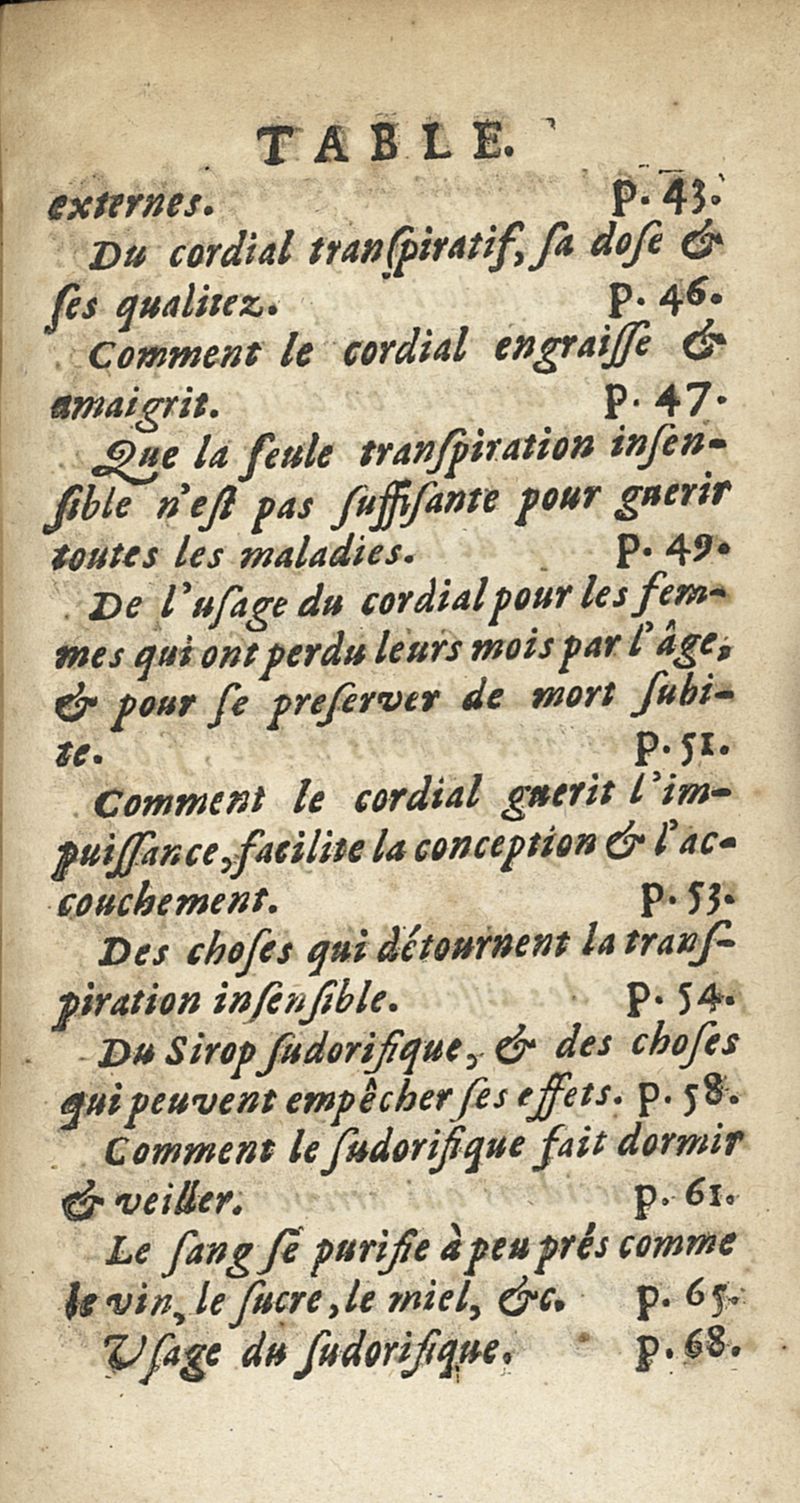 TABLE.
externes. p. 43.
Du cordial tranſpiratif, ſa doſe &
ſes qualitez. p. 46.
Comment le cordial engraiſſe &
amaigrit. p. 47.
Que la ſeule tranſpiration inſen-
ſible n'eſt pas ſuffiſante pour guerir
toutes les maladies. p. 49.
De l'uſage du cordial pour les fem-
mes qui ont perdu leurs mois par l'âge,
& pour ſe preſerver de mort ſubi-
te. p. 51.
Comment le cordial guerit l'im-
puiſſance, facilite la conception & l'ac-
couchement. p. 53.
Des choſes qui détournent la tranſ-
piration inſenſible. p. 54.
Du Sirop ſudorifique, & des choſes
qui peuvent empêcher ſes effets. p. 58.
Comment le ſudorifique fait dormir
& veiller. p. 61.
Le ſang ſe purifie à peu prés comme
le vin, le ſucre, le miel, &c. p. 65.
Vſage du ſudorifique. p. 68.